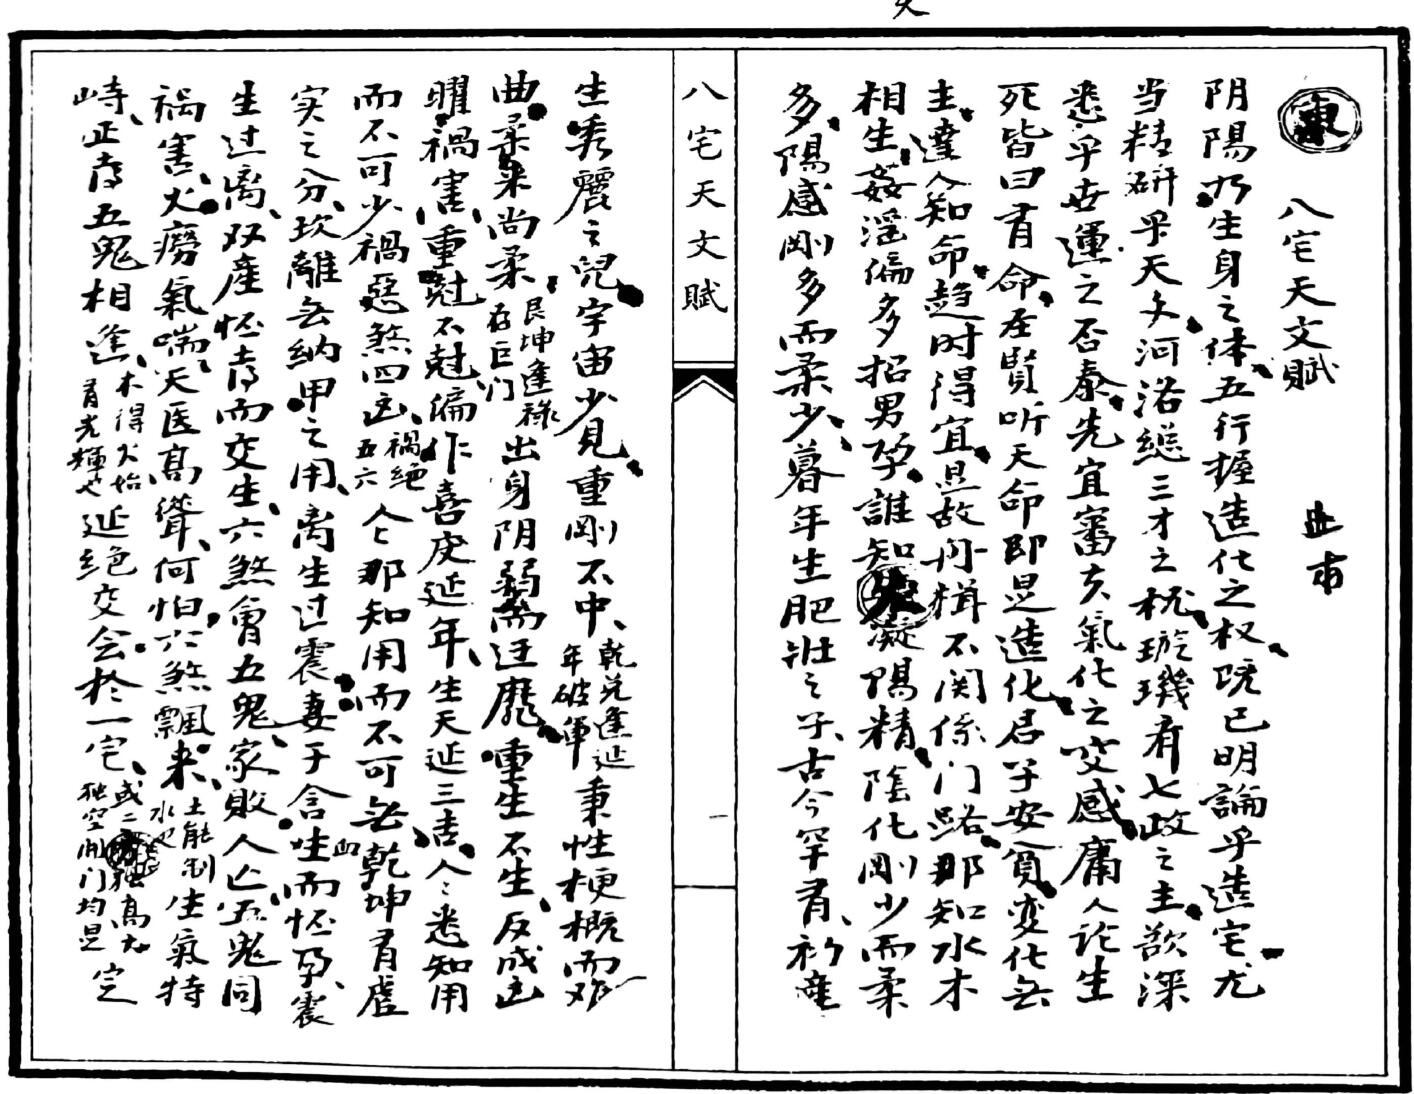 八宅天文賦
阴陽乃生身之体五行握造化之权既已明論乎造宅尤
当精研乎天文河洛総三才之枢璇璣有七政之主欲深
悉乎世運之否泰先宜審亥氣化之交感庸人论生
死皆曰有命圣賢听天命即是造化君子安貧变化無
主達人知命趋时得宜是故舟楫不関係门路那知水木
相生姦淫偏多招男孕誰知凝陽精陰化剛少而柔
多陽感剛多而柔少暮年生肥壯之子古今罕有初產
八宅天文賦
一
生秀麗之兒宇宙少見重剛不中乾兑逢延年破軍秉性梗概而难
曲柔来尚柔艮坤逢祿存巨门出身阴弱而迋靡重生不生反成凶
曜禍害重尅不尅偏作喜度延年生天延三吉人々悉知用
而不可少禍惡煞四凶禍绝五六人亡那知用而不可無乾坤有虚
实之分坎離無納甲之用离生过震妻于含生而怀孕震
生过离双產怀方而交生六煞會五鬼家敗人亡五鬼同
禍害火癆氣喘天医髙聳何怕六煞飄来土能制水也生氣特
峙正方五鬼相逢木得火始有光輝也延絶交会於一宅或二独髙大独空開门均是宅